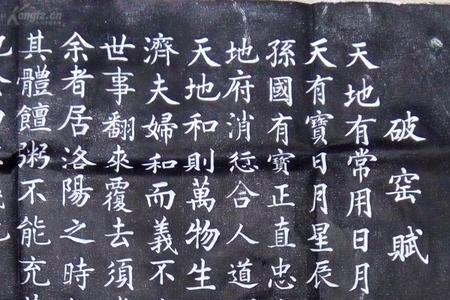 破窑賦
天地有常用日月
天有寶日月星辰
孫國有寶正直忠
地府消愆合人道
天地和則萬物生
濟夫婦和而義不
世事翻來覆去須
余者居洛陽之時
其體饘粥不能充